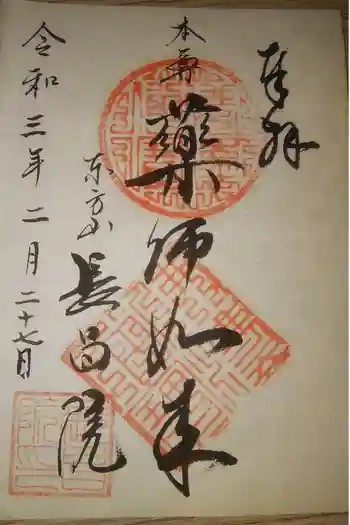 奉拝
本尊
薬師如来
东方山
長昌院
令和三年二月二十七日